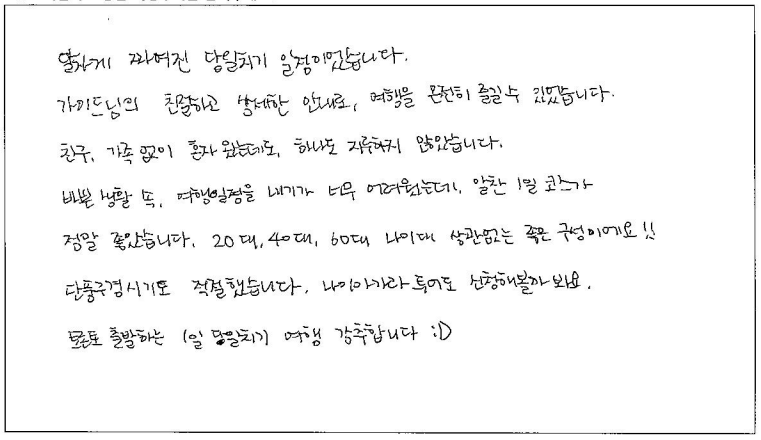 알차게 짜여진 당일치기 일정이었습니다.
가이드님의 친절하고 상세한 안내로, 여행을 온전히 즐길 수 있었습니다.
친구, 가족 없이 혼자 왔는데도, 하나도 지루하지 않았습니다.
바쁜 생활 속, 여행일정을 내기가 너무 어려웠는데, 알찬 1일 코스가
정말 좋았습니다. 20대, 40대, 60대 나이대 상관없는 좋은 구성이에요!!
단풍구경시기도 적절했습니다. 나이아가라 투어도 신청해볼까봐요.
토론토 출발하는 1일 당일치기 여행 강추합니다 :D